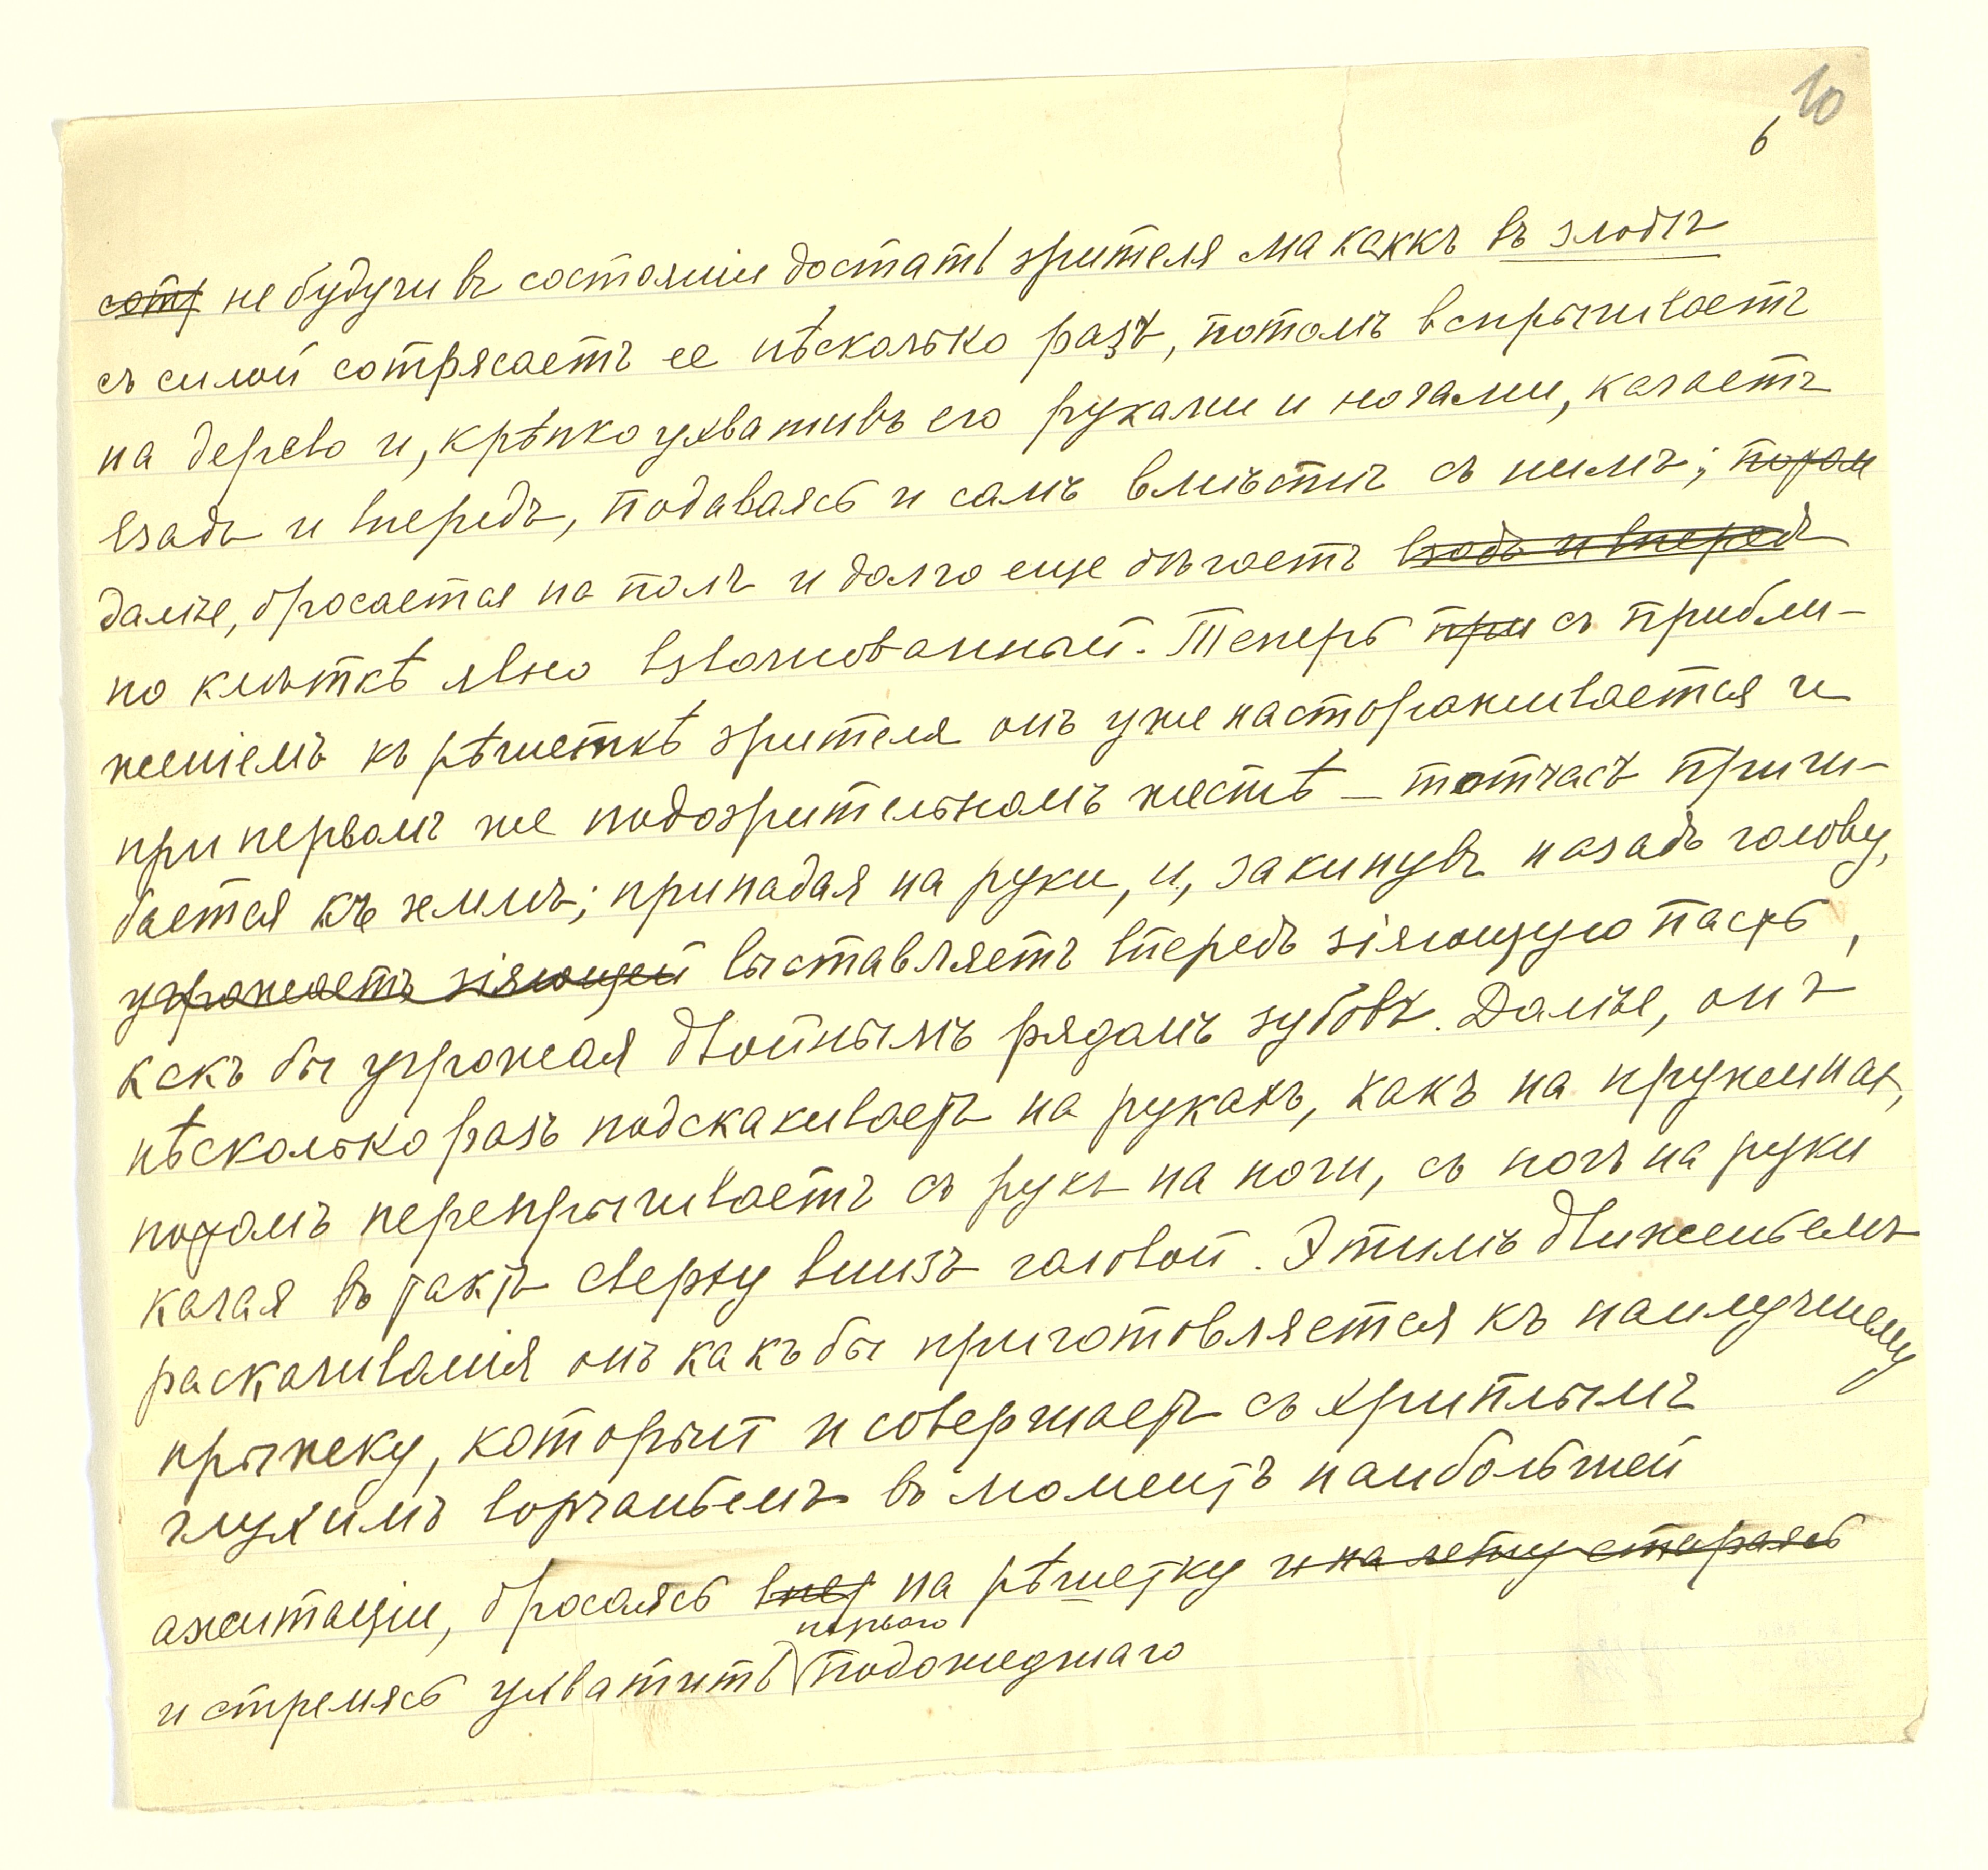 10
6
сотр не будучи въ состоянiи достать зрителя макаккъ въ злобѣ
съ силой сотрясаетъ ее нѣсколько разъ, потомъ вспрыгиваетъ
на дерево и, крѣпко ухвативъ его руками и ногами, качаетъ
взадъ и впередъ, подаваясь и самъ вмѣстѣ съ нимъ; потом
далѣе, бросается на полъ и долго еще бѣгаетъ взадъ и впередъ
по клѣткѣ явно взволнованный. Теперь при съ прибли-
женiемъ къ рѣшеткѣ зрителя онъ уже настораживается и
при первомъ же подозрительномъ жестѣ – тотчасъ приги-
бается къ землѣ; припадая на руки, и, закинувъ назадъ голову,
угрожаетъ зiяющей выставляетъ впередъ зiяющую пасть,
какъ бы угрожая двойнымъ рядомъ зубовъ. Далѣе, онъ
нѣсколько разъ подскакиваетъ на рукахъ, какъ на пружинах,
потомъ перепрыгиваетъ съ рукъ на ноги, съ ногъ на руки
качая въ тактъ сверху внизъ головой. Этимъ движеньемъ
раскачиванiя онъ какъ бы приготовляется къ наилучшему
прыжку, который и совершаетъ съ хриплымъ
глухимъ ворчаньемъ въ моментъ наибольшей
ажитацiи, бросаясь впер на рѣшетку и на лету стараясь
и стремясь ухватить перваго подошедшаго